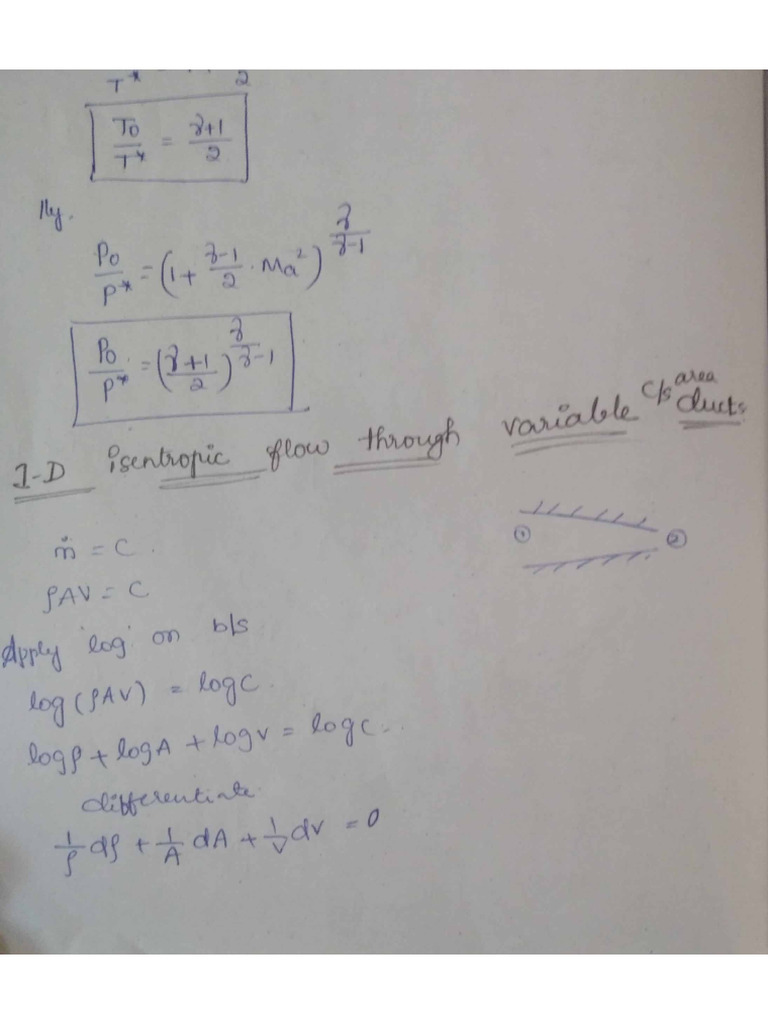 T* 2
T0/T* = (γ+1)/2
lly.
P0/P* = (1 + (γ-1)/2 · Ma²)^(γ/(γ-1))
P0/P* = ((γ+1)/2)^(γ/(γ-1))
1-D isentropic flow through variable c/s area ducts
① ②
ṁ = C.
ρAV = C
Apply 'log' on b/s
log(ρAV) = logC.
logρ + logA + logV = logC.
differentiate.
1/ρ dρ + 1/A dA + 1/V dV = 0